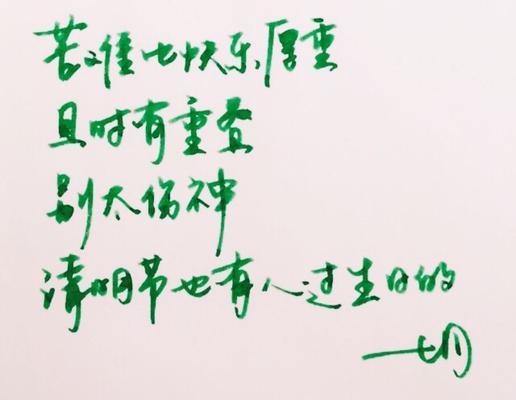 苦难比快乐厚重
且时有重叠
别太伤神
清明节也有人过生日的
一七月